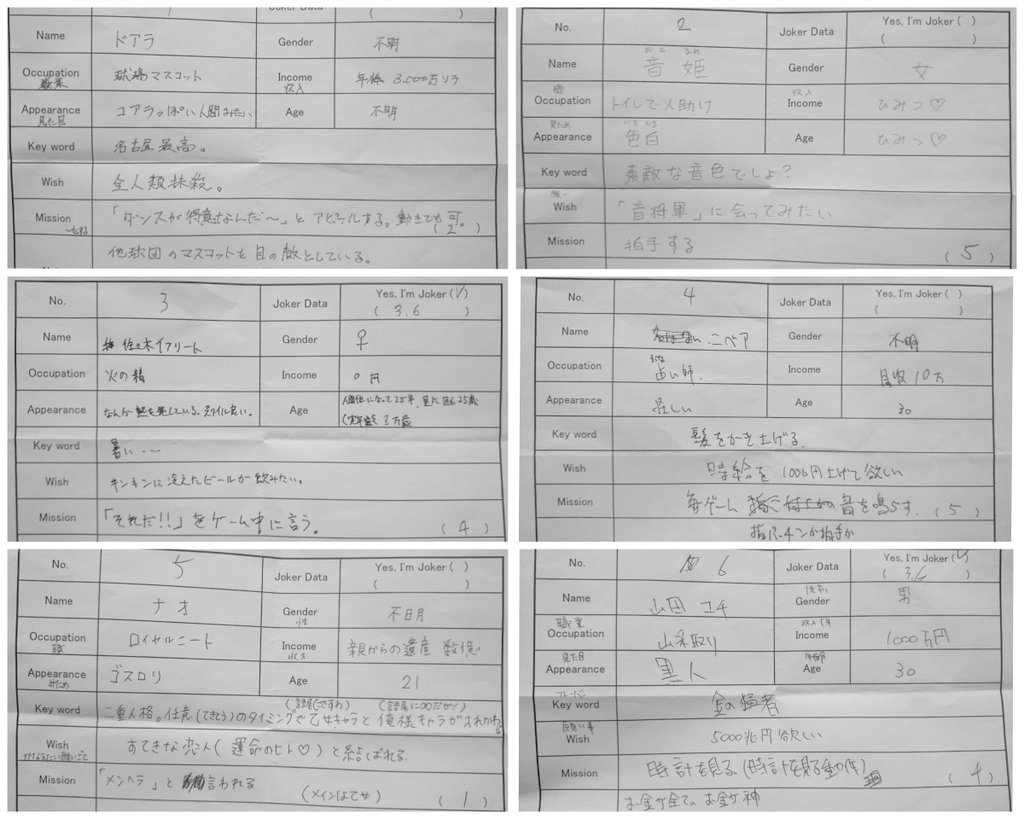 Joker Data
( )
Name ドアラ Gender 不明
Occupation 職業 球場マスコット Income 収入 年棒 3,000万リラ
Appearance 見た目 コアラっぽい人間みたい Age 不明
Key word 名古屋最高。
Wish 全人類抹殺。
Mission 「ダンスが得意なんだ〜」とアピールする。動きでも可。
( 2 )
他球団のマスコットを目の敵としている。
No. 2 Joker Data Yes, I'm Joker ( )
( )
おと ひめ
Name 音姫 Gender 女
Occupation トイレで人助け 収入 Income ひみつ♡
見ため いろ じろ
Appearance 色白 Age ひみつ♡
Key word 素敵な音色でしょ?
願い Wish 「音将軍」に会ってみたい
Mission 拍手する
( 5 )
No. 3 Joker Data Yes, I'm Joker (✓)
( 3.6 )
Name 佐々木イフリート Gender ♀
Occupation 火の精 Income 0円
Appearance なんか熱を発している。スタイル良い。 Age 人間体になって25年、見た目25歳
Key word 暑い…
Wish キンキンに冷えたビールが飲みたい。
Mission 「それだ!!」をゲーム中に言う。 ( 4 )
No. 4 Joker Data Yes, I'm Joker ( )
( )
Name ニベア Gender 不明
うらな
Occupation 占い師. Income 月収10万
Appearance 怪しい Age 30
Key word 髪をかき上げる.
Wish 時給を1000円上げて欲しい
Mission 毎ゲーム 音を鳴らす. ( 5 )
指パッチンか拍手か
No. 5 Joker Data Yes, I'm Joker ( )
( )
Name ナオ Gender 性 不明
Occupation 職 ロイヤルニート Income 収入 親からの遺産 数億
Appearance みため ゴスロリ Age 21
(語尾にですわ) (語尾に○○だぜ!)
Key word 二重人格。任意(てきとう)のタイミングで乙女キャラと俺様キャラが入れかわる
Wish すてきな恋人(運命のヒト♡)と結ばれる
Mission 「メンヘラ」と言われる
(メインは乙女) ( 1 )
No. 6 Joker Data Yes, I'm Joker (✓)
( 3.6 )
Name 山田コチ 性別 Gender 男
職業 Occupation 山菜取り 収入 Income 1000万円
見た目 Appearance 黒人 年齢 Age 30
フレーズ
Key word 金の猛者
願い事 Wish 5000兆円欲しい
Mission 時計を見る(時計を見る動作)
( 4 )
お金が全て。お金が神